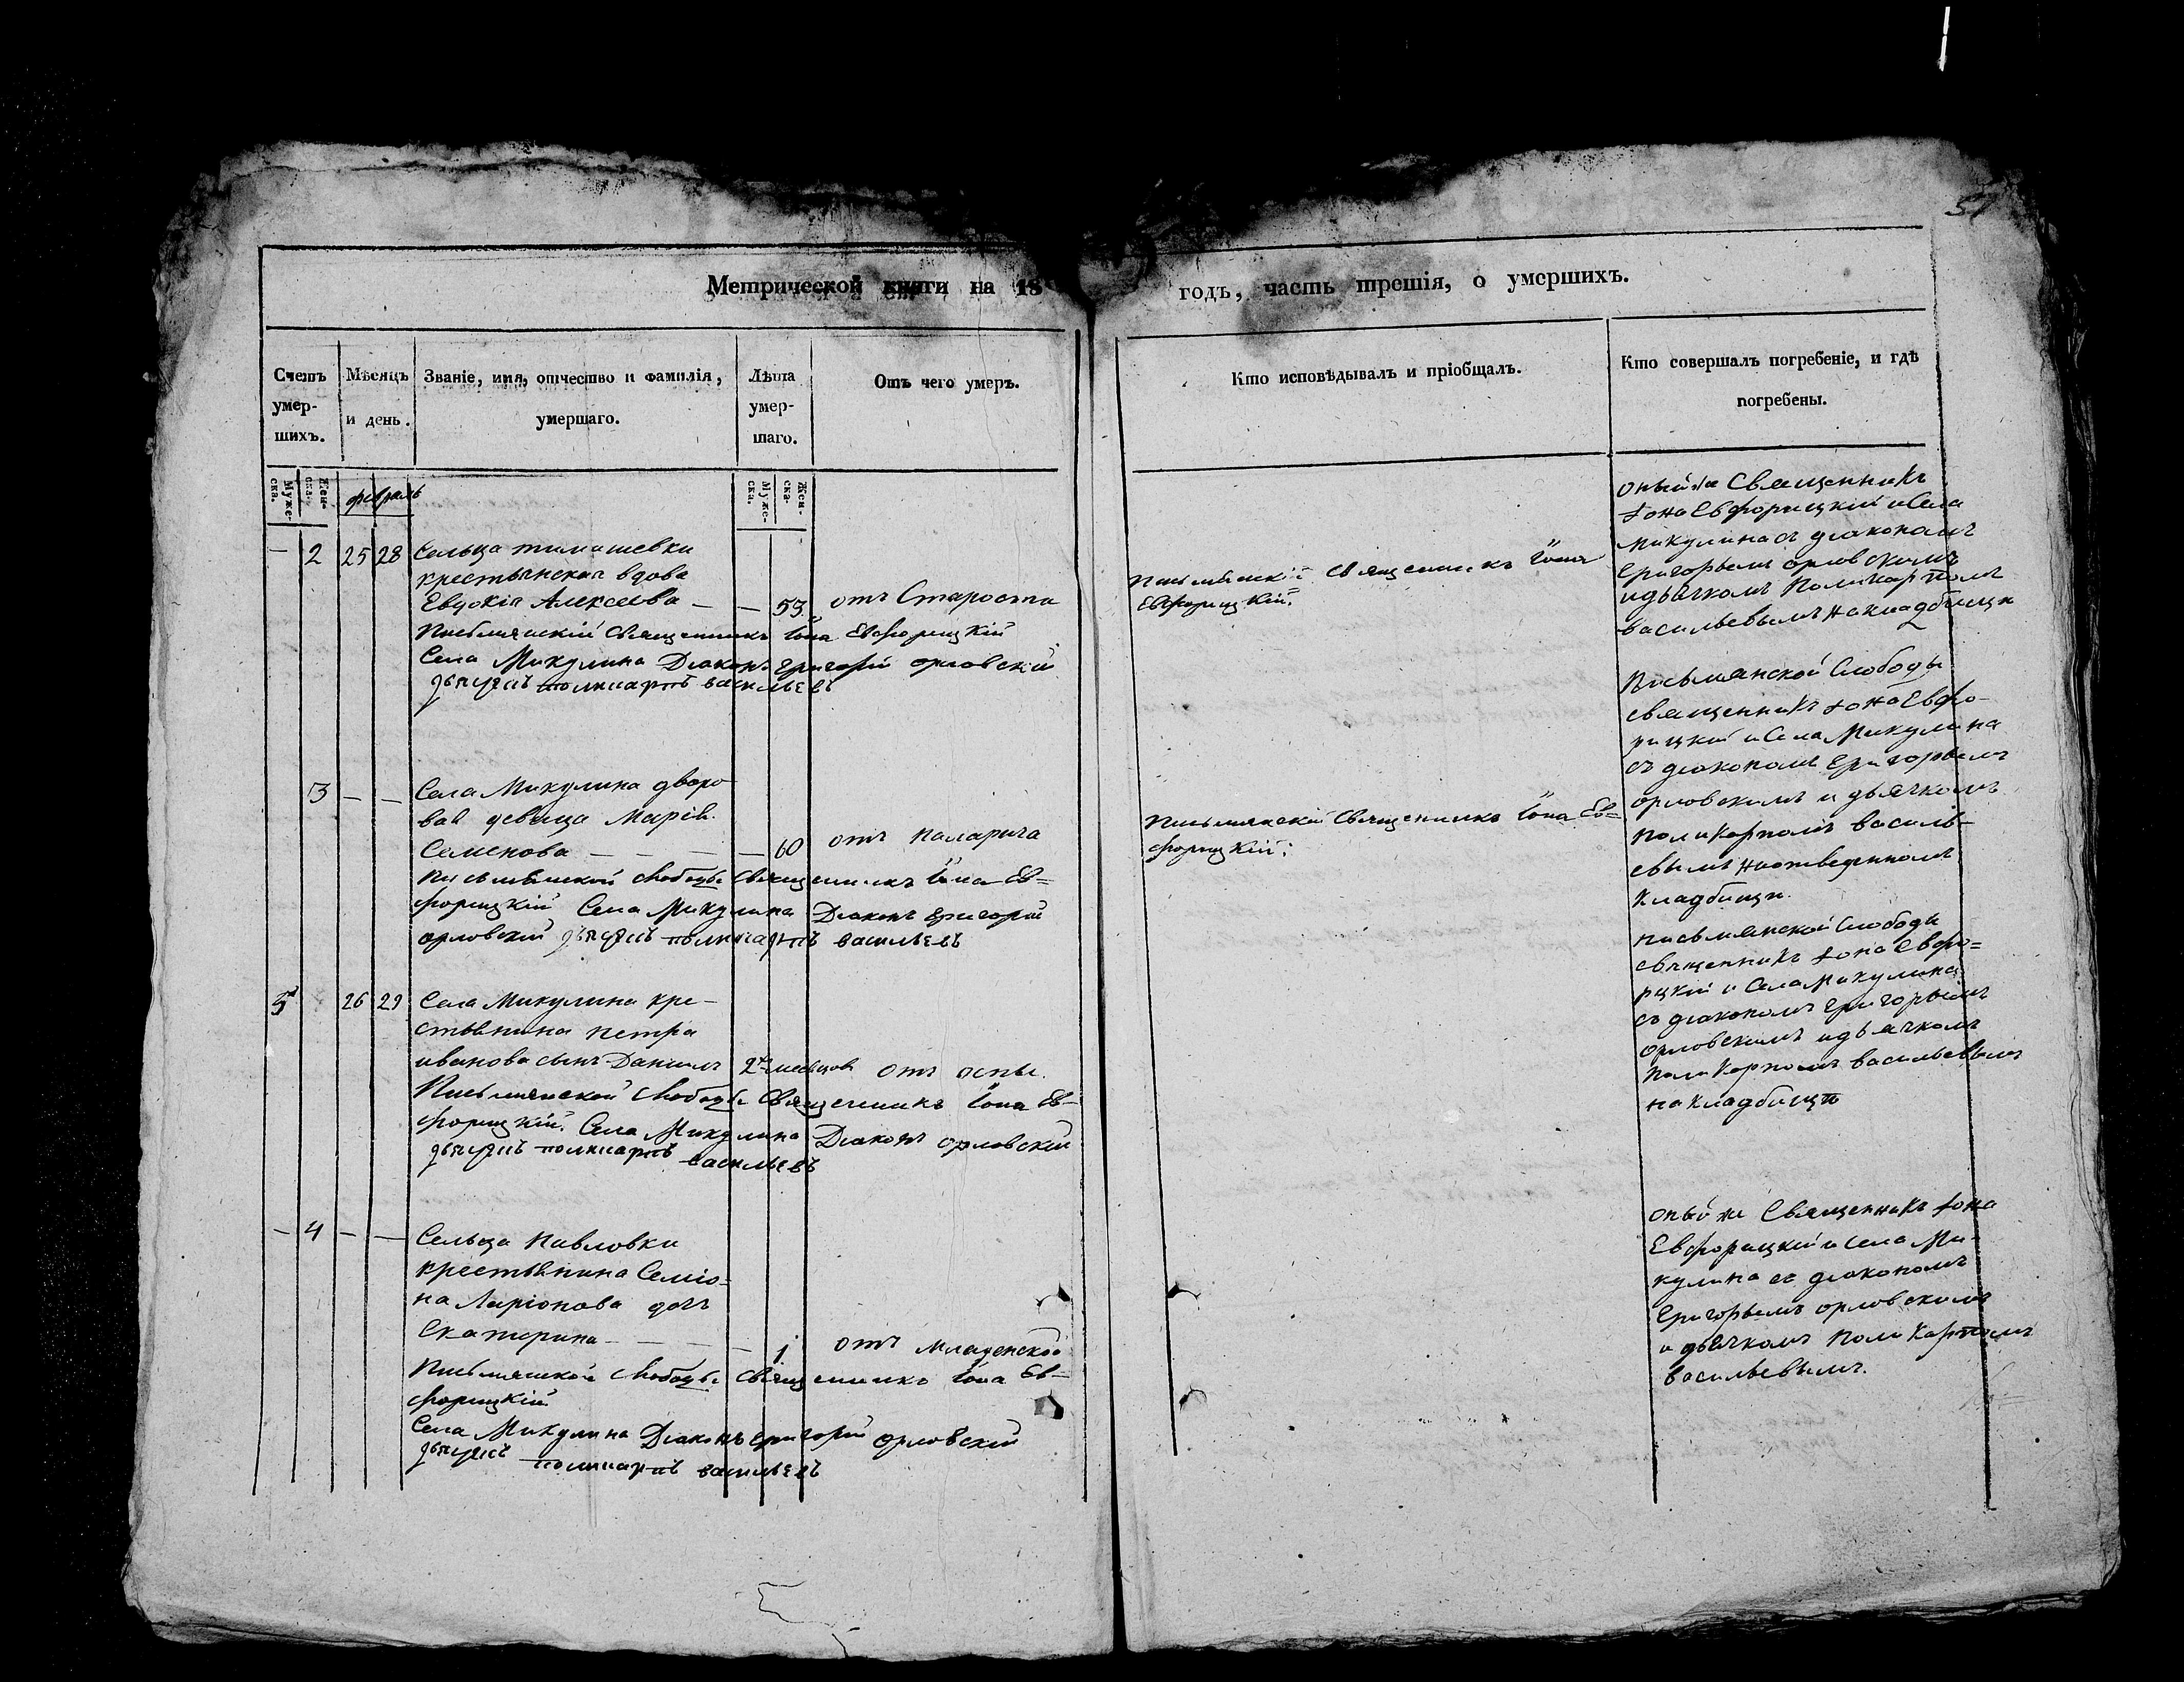 51
Метрической книги на 18
годъ, часть третія, о умершихъ.
Счетъ умер-шихъ.
Мѣсяцъ и день.
Званіе, имя, отчество и фамилія, умершаго.
Лѣта умер-шаго.
Отъ чего умеръ.
Кто исповѣдывалъ и пріобщалъ.
Кто совершалъ погребеніе, и гдѣ погребены.
Муже-ска.
Жен-ска.
февраль
Муже-ска.
Жен-ска.
— 2 25 28 Сельца тимашевки
крестьянская вдова
Евдокіа Алексеева — — 53 отъ Старости
Письмянскій Священникъ Іона Евфорицкій
Села Микулина Діаконъ Григорій орловскій
дьячекъ поликарпъ васильевъ
Письмянскій священникъ Іона
Евфорицкій.
оный же Священникъ
Іона Евфорицкій и Села
микулина съ диакономъ
Григорьемъ орловскимъ
и дьячкомъ Поликарпомъ
васильевымъ на кладбищи
3 — — Села Микулина дворо
вая девица Марія
Семенова — — — — 60 отъ паларича
письмянской слободы Священникъ Іона Ев=
форицкій Села Микулина Діаконъ Григорій
орловскій дьячекъ поликарпъ васильевъ
Письмянской Священникъ Іона Ев=
форицкій:
Письмянской Слободы
священникъ Іона Евфо-
рицкий и Села Микулина
съ диакономъ Григорьемъ
орловскимъ и дьячкомъ
поликарпомъ василь-
евымъ на отведенномъ
кладбищи.
3 26 29 Села Микулина кре-
стьянина петра
иванова сынъ Даниилъ 2 месяцов отъ оспы.
Письмянской слободы Священникъ Іона Ев-
форицкій. Села Микулина Діаконъ орловскій
дьячекъ поликарпъ васильевъ
письмянской Слободы
священникъ Іона Евфо=
рцкій и Села Микулина
съ диакономъ Григорьемъ
орловскимъ и дьячкомъ
поликарпомъ васильевымъ
на кладбищи
— 4 — — Сельца Павловки
крестьянина Семіо-
на Ларіонова дочь
Екатерина — — — — 1 отъ младенской
Письмянской слободы священникъ Іона Ев-
форицкій
Села Микулина Діаконъ Григорій орловскій
дьячекъ поликарпъ васильевъ
оный же Священникъ Іона
Евфорицкий и Села Ми-
кулина съ диакономъ
Григорьемъ орловскимъ
и дьячкомъ поликарпомъ
васильевымъ.